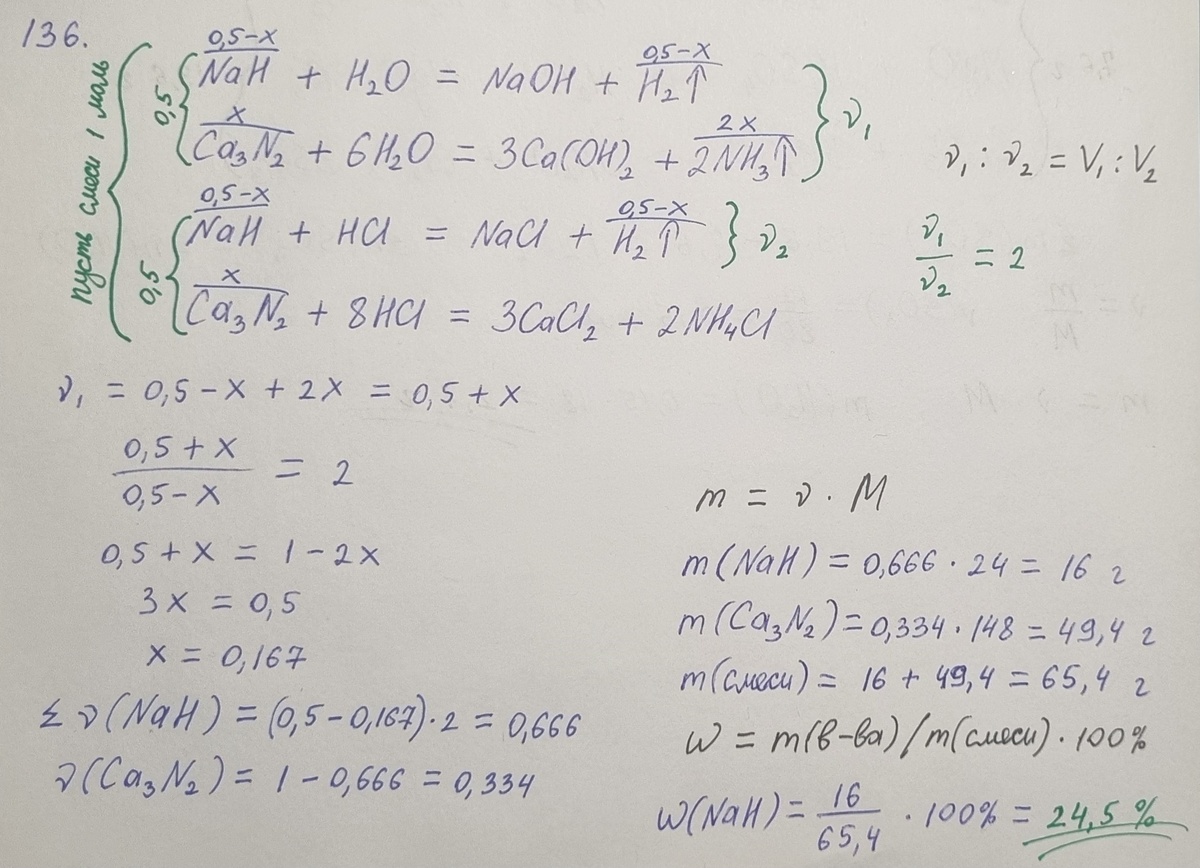 136.
пусть смеси 1 моль
0,5
0,5-x 0,5-x
NaH + H₂O = NaOH + H₂↑
x 2x
Ca₃N₂ + 6H₂O = 3Ca(OH)₂ + 2NH₃↑
ν₁
ν₁ : ν₂ = V₁ : V₂
0,5
0,5-x 0,5-x
NaH + HCl = NaCl + H₂↑
ν₂
x
Ca₃N₂ + 8HCl = 3CaCl₂ + 2NH₄Cl
ν₁/ν₂ = 2
ν₁ = 0,5 - x + 2x = 0,5 + x
(0,5 + x)/(0,5 - x) = 2
0,5 + x = 1 - 2x
3x = 0,5
x = 0,167
Σ ν(NaH) = (0,5 - 0,167)·2 = 0,666
ν(Ca₃N₂) = 1 - 0,666 = 0,334
m = ν · M
m(NaH) = 0,666 · 24 = 16 г
m(Ca₃N₂) = 0,334 · 148 = 49,4 г
m(смеси) = 16 + 49,4 = 65,4 г
w = m(в-ва)/m(смеси) · 100%
w(NaH) = 16/65,4 · 100% = 24,5 %